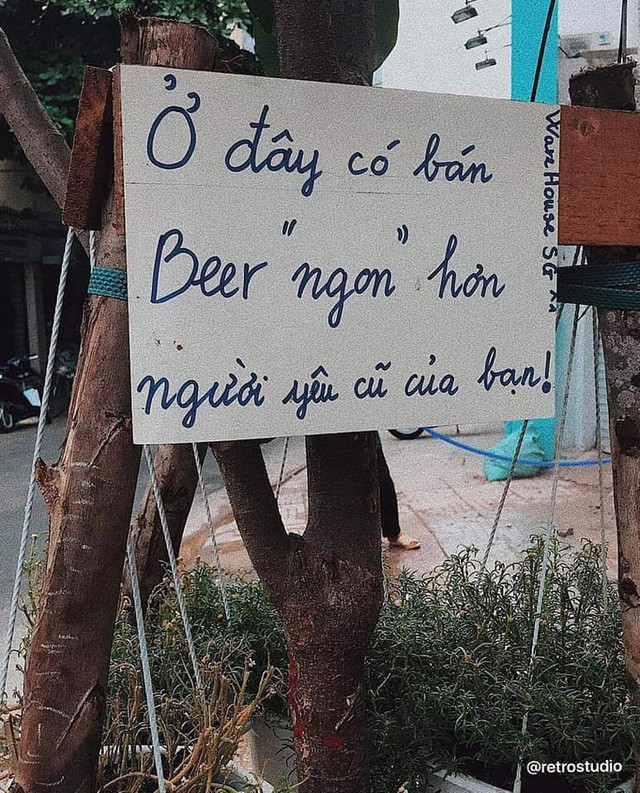 Ở đây có bán
Beer "ngon" hơn
người yêu cũ của bạn!
House SG
@retrostudio